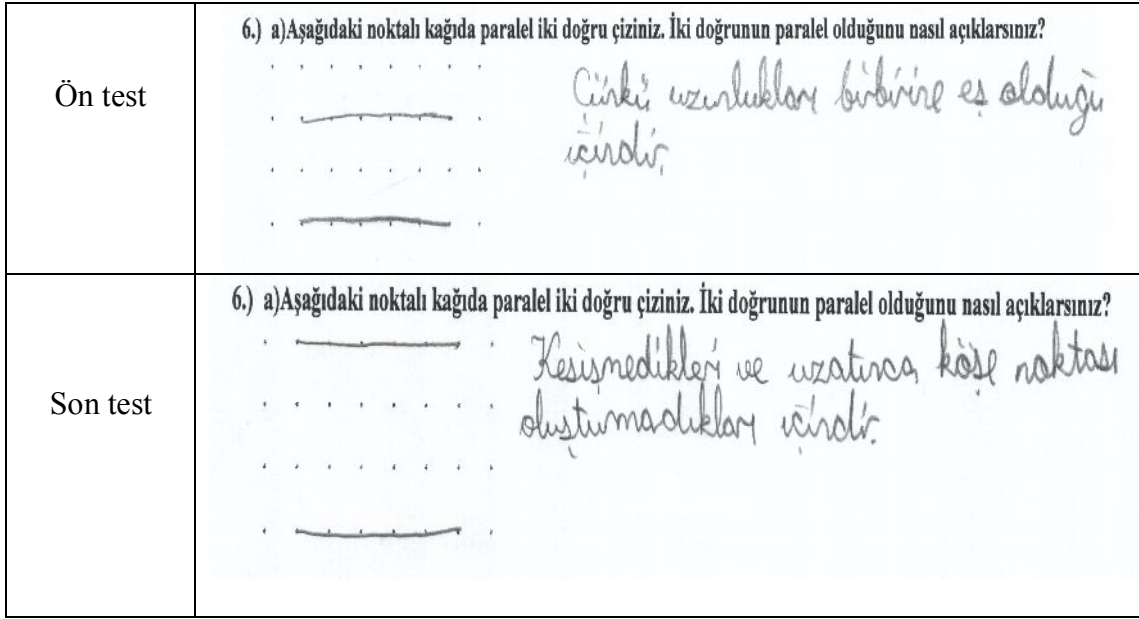 Ön test
6.) a)Aşağıdaki noktalı kağıda paralel iki doğru çiziniz. İki doğrunun paralel olduğunu nasıl açıklarsınız?
Çünkü uzunlukları birbirine eş olduğu
içindir.
Son test
6.) a)Aşağıdaki noktalı kağıda paralel iki doğru çiziniz. İki doğrunun paralel olduğunu nasıl açıklarsınız?
Kesişmedikleri ve uzatınca köşe noktası
oluştumadıkları içindir.